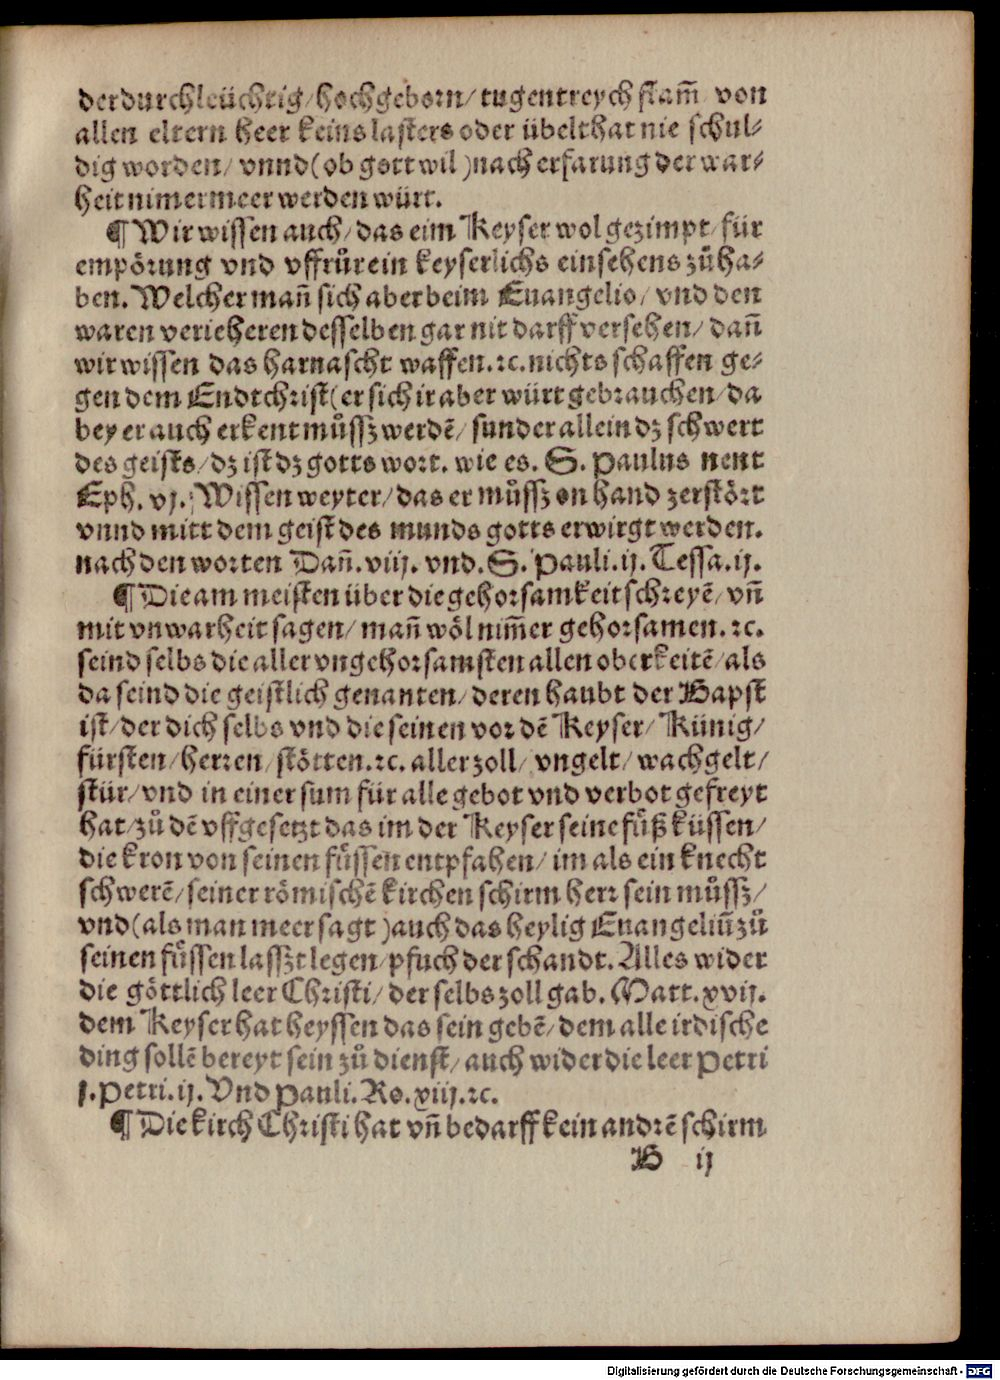 der durchleüchtig/ hochgeborn/ tugentreych stam̃ von
allen eltern heer keins lasters oder übelthat nie schul⸗
dig worden/ vnnd (ob gott wil) nach erfarung der war⸗
heit nimermeer werden würt.
¶ Wir wissen auch/ das eim Keyser wol gezimpt/ für
empörung vnd vffrůr ein keyserlichs einsehens zů ha⸗
ben. Welcher mañ sich aber beim Euangelio/ vnd den
waren verieheren desselben gar nit darff versehen/ dañ
wir wissen das harnascht waffen. ꝛc. nichts schaffen ge⸗
gen dem Endtchrist (er sich ir aber würt gebrauchen/ da
bey er auch erkent můssz werdẽ/ sunder allein dz schwert
des geists/ dz ist dz gotts wort. wie es. S. Paulus nent
Eph. vj. Wissen weyter/ das er můssz on hand zerstört
vnnd mitt dem geist des munds gotts erwirgt werden.
nach den worten Dañ. viij. vnd. S. Pauli. ij. Tessa. ij.
¶ Die am meisten über die gehorsamkeit schreyẽ/ vñ
mit vnwarheit sagen/ mañ wöl nim̃er gehorsamen. ꝛc.
seind selbs die aller vngehorsamsten allen oberkeitẽ/ als
da seind die geistlich genanten/ deren haubt der Bapst
ist/ der dich selbs vnd die seinen vor dẽ Keyser/ Künig/
fürsten/ herren/ stötten. ꝛc. aller zoll/ vngelt/ wachgelt/
stür/ vnd in einer sum für alle gebot vnd verbot gefreyt
hat/ zů dẽ vffgesetzt das im der Keyser seine fůß küssen/
die kron von seinen fůssen entpfahen/ im als ein knecht
schwerẽ/ seiner römischẽ kirchen schirm herr sein můssz/
vnd (als man meer sagt) auch das heylig Euangeliũ zů
seinen fůssen lasszt legen/ pfuch der schandt. Alles wider
die göttlich leer Christi/ der selbs zoll gab. Matt. xvij.
dem Keyser hat heyssen das sein gebẽ/ dem alle irdische
ding sollẽ bereyt sein zů dienst/ auch wider die leer Petri
j. Petri. ij. Vnd Pauli. Ro. xiij. ꝛc.
¶ Die kirch Christi hat vñ bedarff kein andrẽ schirm
B ij
Digitalisierung gefördert durch die Deutsche Forschungsgemeinschaft - DFG